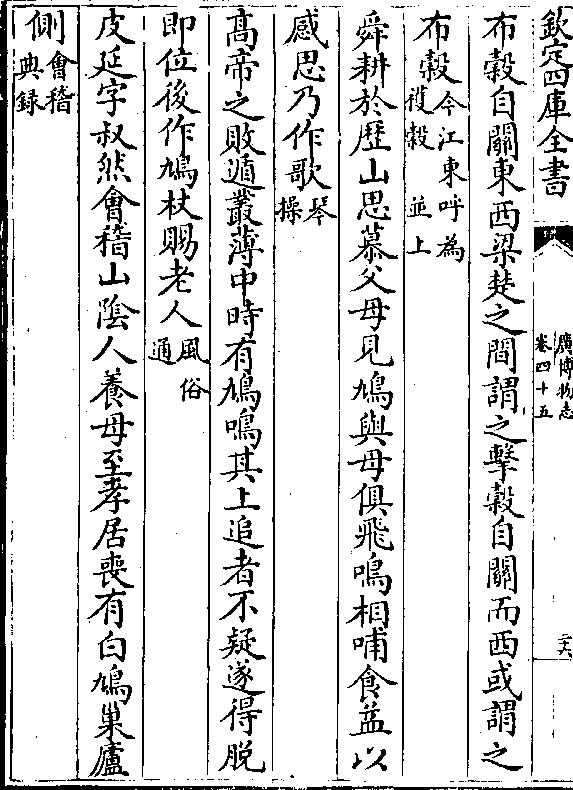 欽定四庫全書
廣博物志
卷四十五
二六
布穀自關東西梁楚之間謂之擊穀自關而西或謂之
布穀今江東呼為
穫穀 並上
舜耕於歷山思慕父母見鳩與母俱飛鳴相哺食益以
感思乃作歌琴
操
高帝之敗遁叢薄中時有鳩鳴其上追者不疑遂得脫
即位後作鳩杖賜老人風俗
通
皮延字叔然會稽山陰人養母至孝居喪有白鳩巢廬
側會稽
典録